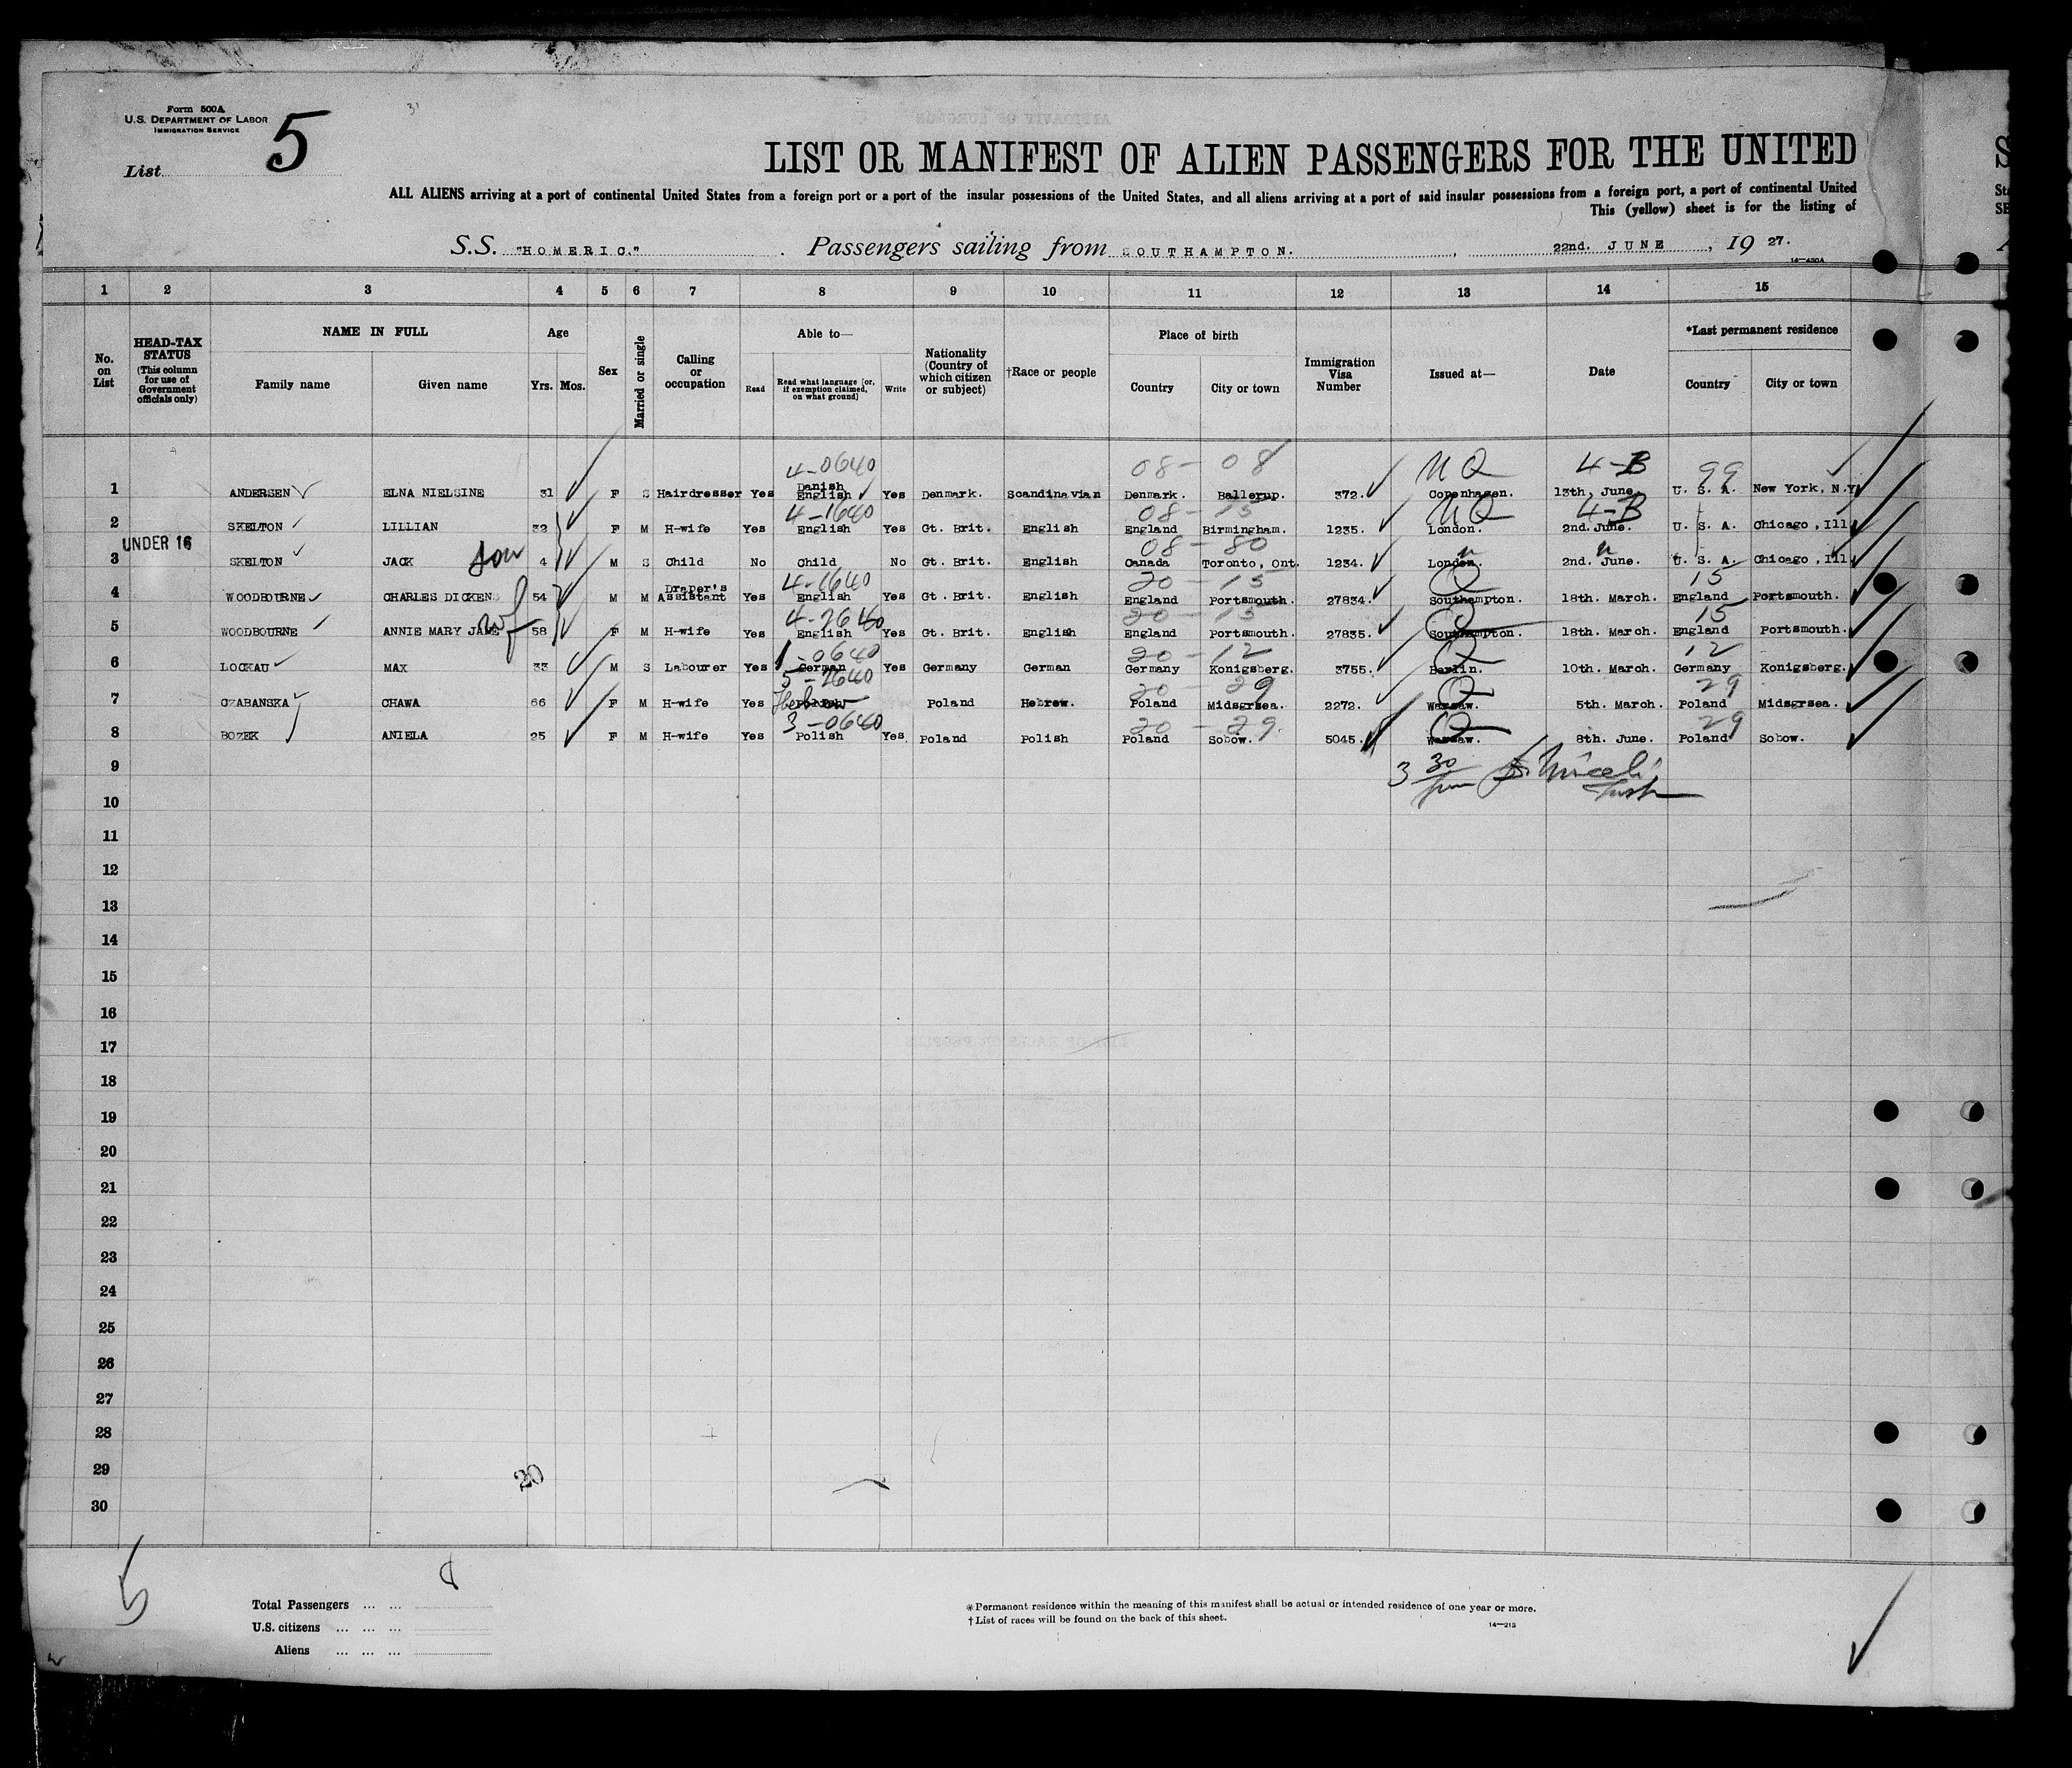 Form 500A
U.S. DEPARTMENT OF LABOR
IMMIGRATION SERVICE
List 5
LIST OR MANIFEST OF ALIEN PASSENGERS FOR THE UNITED
ALL ALIENS arriving at a port of continental United States from a foreign port or a port of the insular possessions of the United States, and all aliens arriving at a port of said insular possessions from a foreign port, a port of continental United
This (yellow) sheet is for the listing of
S.S. "HOMERIC." Passengers sailing from SOUTHAMPTON. , 22nd. JUNE , 19 27.
14—430A
1 2 3 4 5 6 7 8 9 10 11 12 13 14 15
No. on List
HEAD-TAX STATUS (This column for use of Government officials only)
NAME IN FULL
Family name Given name
Age
Yrs. Mos.
Sex
Married or single
Calling or occupation
Able to—
Read
Read what language [or, if exemption claimed, on what ground]
Write
Nationality (Country of which citizen or subject)
†Race or people
Place of birth
Country City or town
Immigration Visa Number
Issued at—
Date
*Last permanent residence
Country City or town
4-0640 08 - 08 NQ 4-B 99
1 ANDERSEN ELNA NIELSINE 31 F S Hairdresser Yes Danish English Yes Denmark. Scandinavian Denmark. Ballerup. 372. Copenhagen. 13th. June. U. S. A. New York, N.Y.
4-1640 08 - 15 NQ 4-B
2 SKELTON LILLIAN 32 F M H-wife Yes English Yes Gt. Brit. English England Birmingham. 1235. London. 2nd. June. U. S. A. Chicago, Ill
UNDER 16 08 - 80
3 SKELTON JACK son 4 M S Child No Child No Gt. Brit. English Canada Toronto, Ont. 1234. London. 2nd. June. U. S. A. Chicago, Ill
4-1640 20 - 15 Q 15
4 WOODBOURNE CHARLES DICKENS 54 M M Draper's Assistant Yes English Yes Gt. Brit. English England Portsmouth. 27834. Southampton. 18th. March. England Portsmouth.
4-2640 20 - 15 Q 15
5 WOODBOURNE ANNIE MARY JANE wf 58 F M H-wife Yes English Yes Gt. Brit. English England Portsmouth. 27835. Southampton. 18th. March. England Portsmouth.
1-0640 20 - 12 Q 12
6 LOCKAU MAX 33 M S Labourer Yes German Yes Germany German Germany Konigsberg. 3755. Berlin. 10th. March. Germany Konigsberg.
5-2640 20 - 29 Q 29
7 CZABANSKA CHAWA 66 F M H-wife Yes Hebrew Poland Hebrew. Poland Midsgrsea. 2272. Warsaw. 5th. March. Poland Midsgrsea.
3-0640 20 - 29 Q 29
8 BOZEK ANIELA 25 F M H-wife Yes Polish Yes Poland Polish Poland Sobow. 5045. Warsaw. 8th. June. Poland Sobow.
9 3 30
10
11
12
13
14
15
16
17
18
19
20
21
22
23
24
25
26
27
28
29
30
30
8
Total Passengers ... ...
U.S. citizens ... ... ...
Aliens ... ... ...
*Permanent residence within the meaning of this manifest shall be actual or intended residence of one year or more.
†List of races will be found on the back of this sheet.
14—213